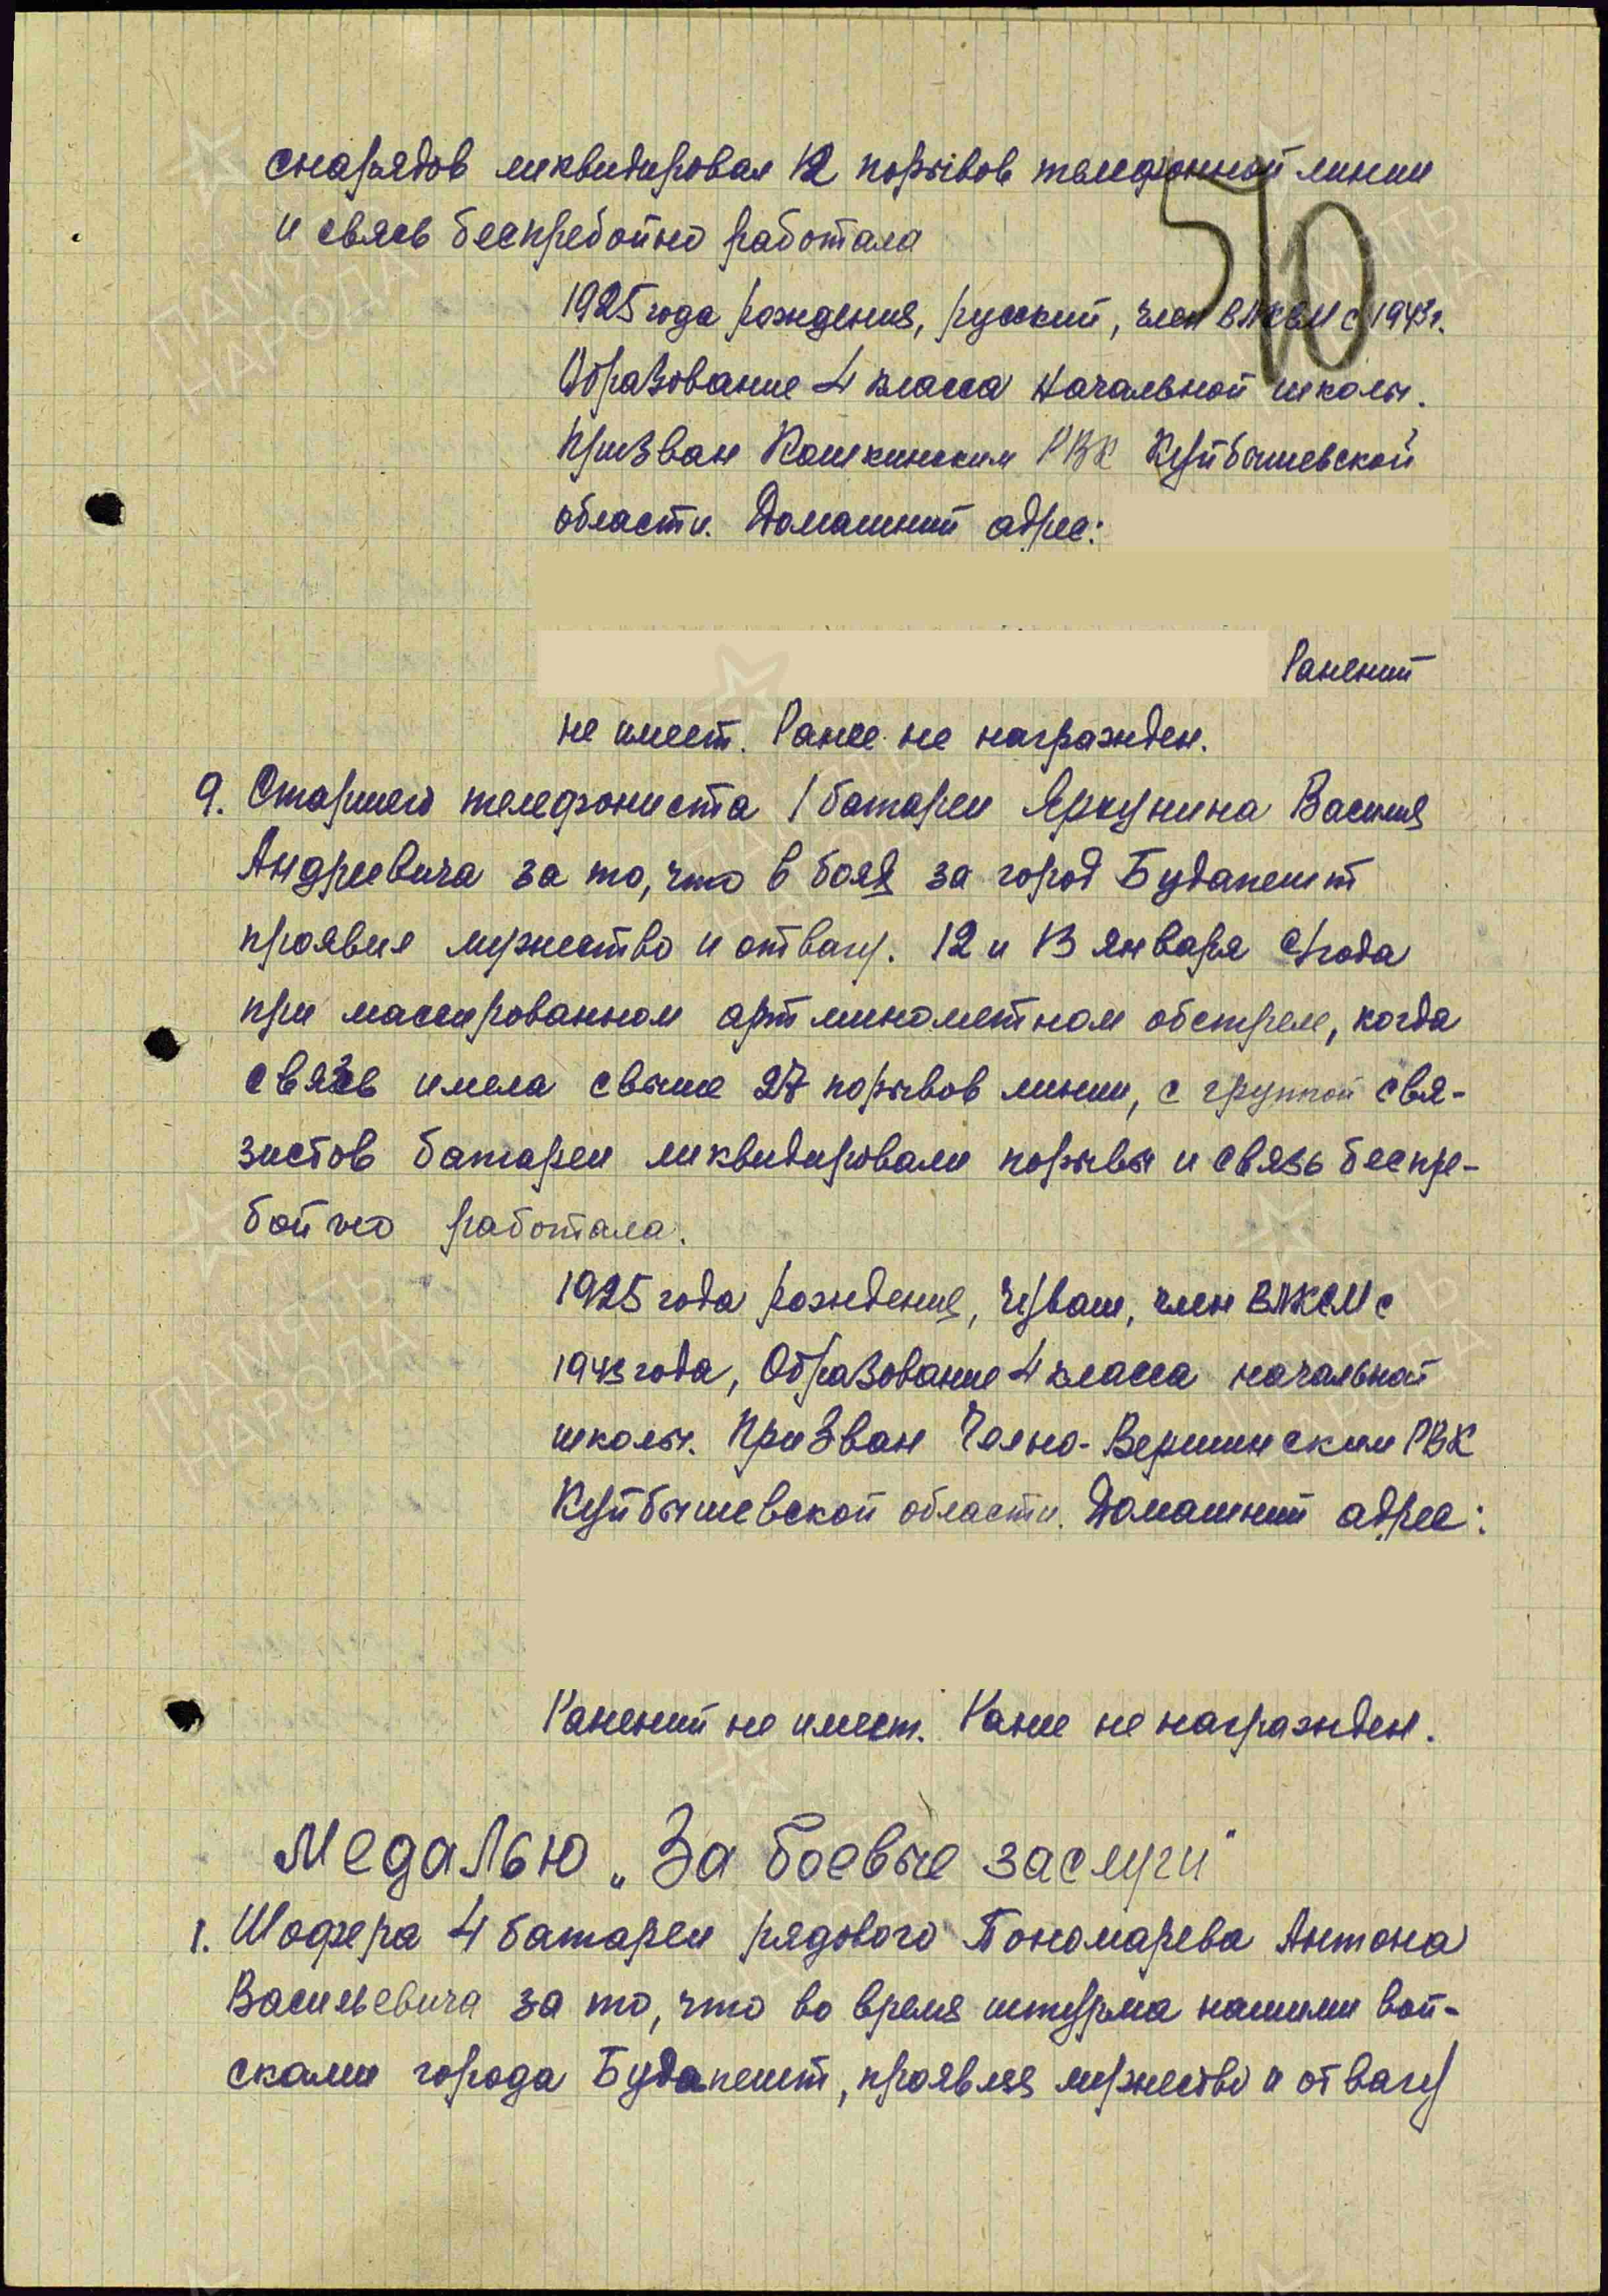 снарядов ликвидировал 12 порывов телефонной линии
510
и связь беспребойно работала
1925 года рождения, русский, член ВЛКСМ с 1943 г.
Образование 4 класса начальной школы.
Призван Кошкинским РВК Куйбышевской
области. Домашний адрес:
Ранений
не имеет. Ранее не награжден.
9. Старшего телефониста 1 батареи Яркунина Василия
Андреевича за то, что в боях за город Будапешт
проявил мужество и отвагу. 12 и 13 января с/года
при массированном артминометном обстреле, когда
связь имела свыше 27 порывов линии, с группой свя-
зистов батареи ликвидировали порывы и связь беспре-
бойно работала.
1925 года рождения, чуваш, член ВЛКСМ с
1943 года, Образование 4 класса начальной
школы. Призван Челно-Вершинским РВК
Куйбышевской области. Домашний адрес:
Ранений не имеет. Ранее не награжден.
Медалью „За боевые заслуги"
1. Шофера 4 батареи рядового Пономарева Антона
Васильевича за то, что во время штурма нашими вой-
сками города Будапешт, проявляя мужество и отвагу
ПАМЯТЬ
НАРОДА